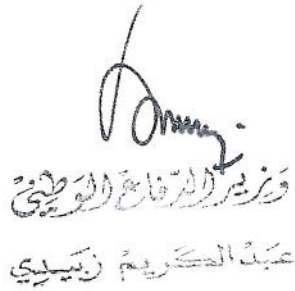 وزير الدفاع الوطني
عبد الكريم زبيدي